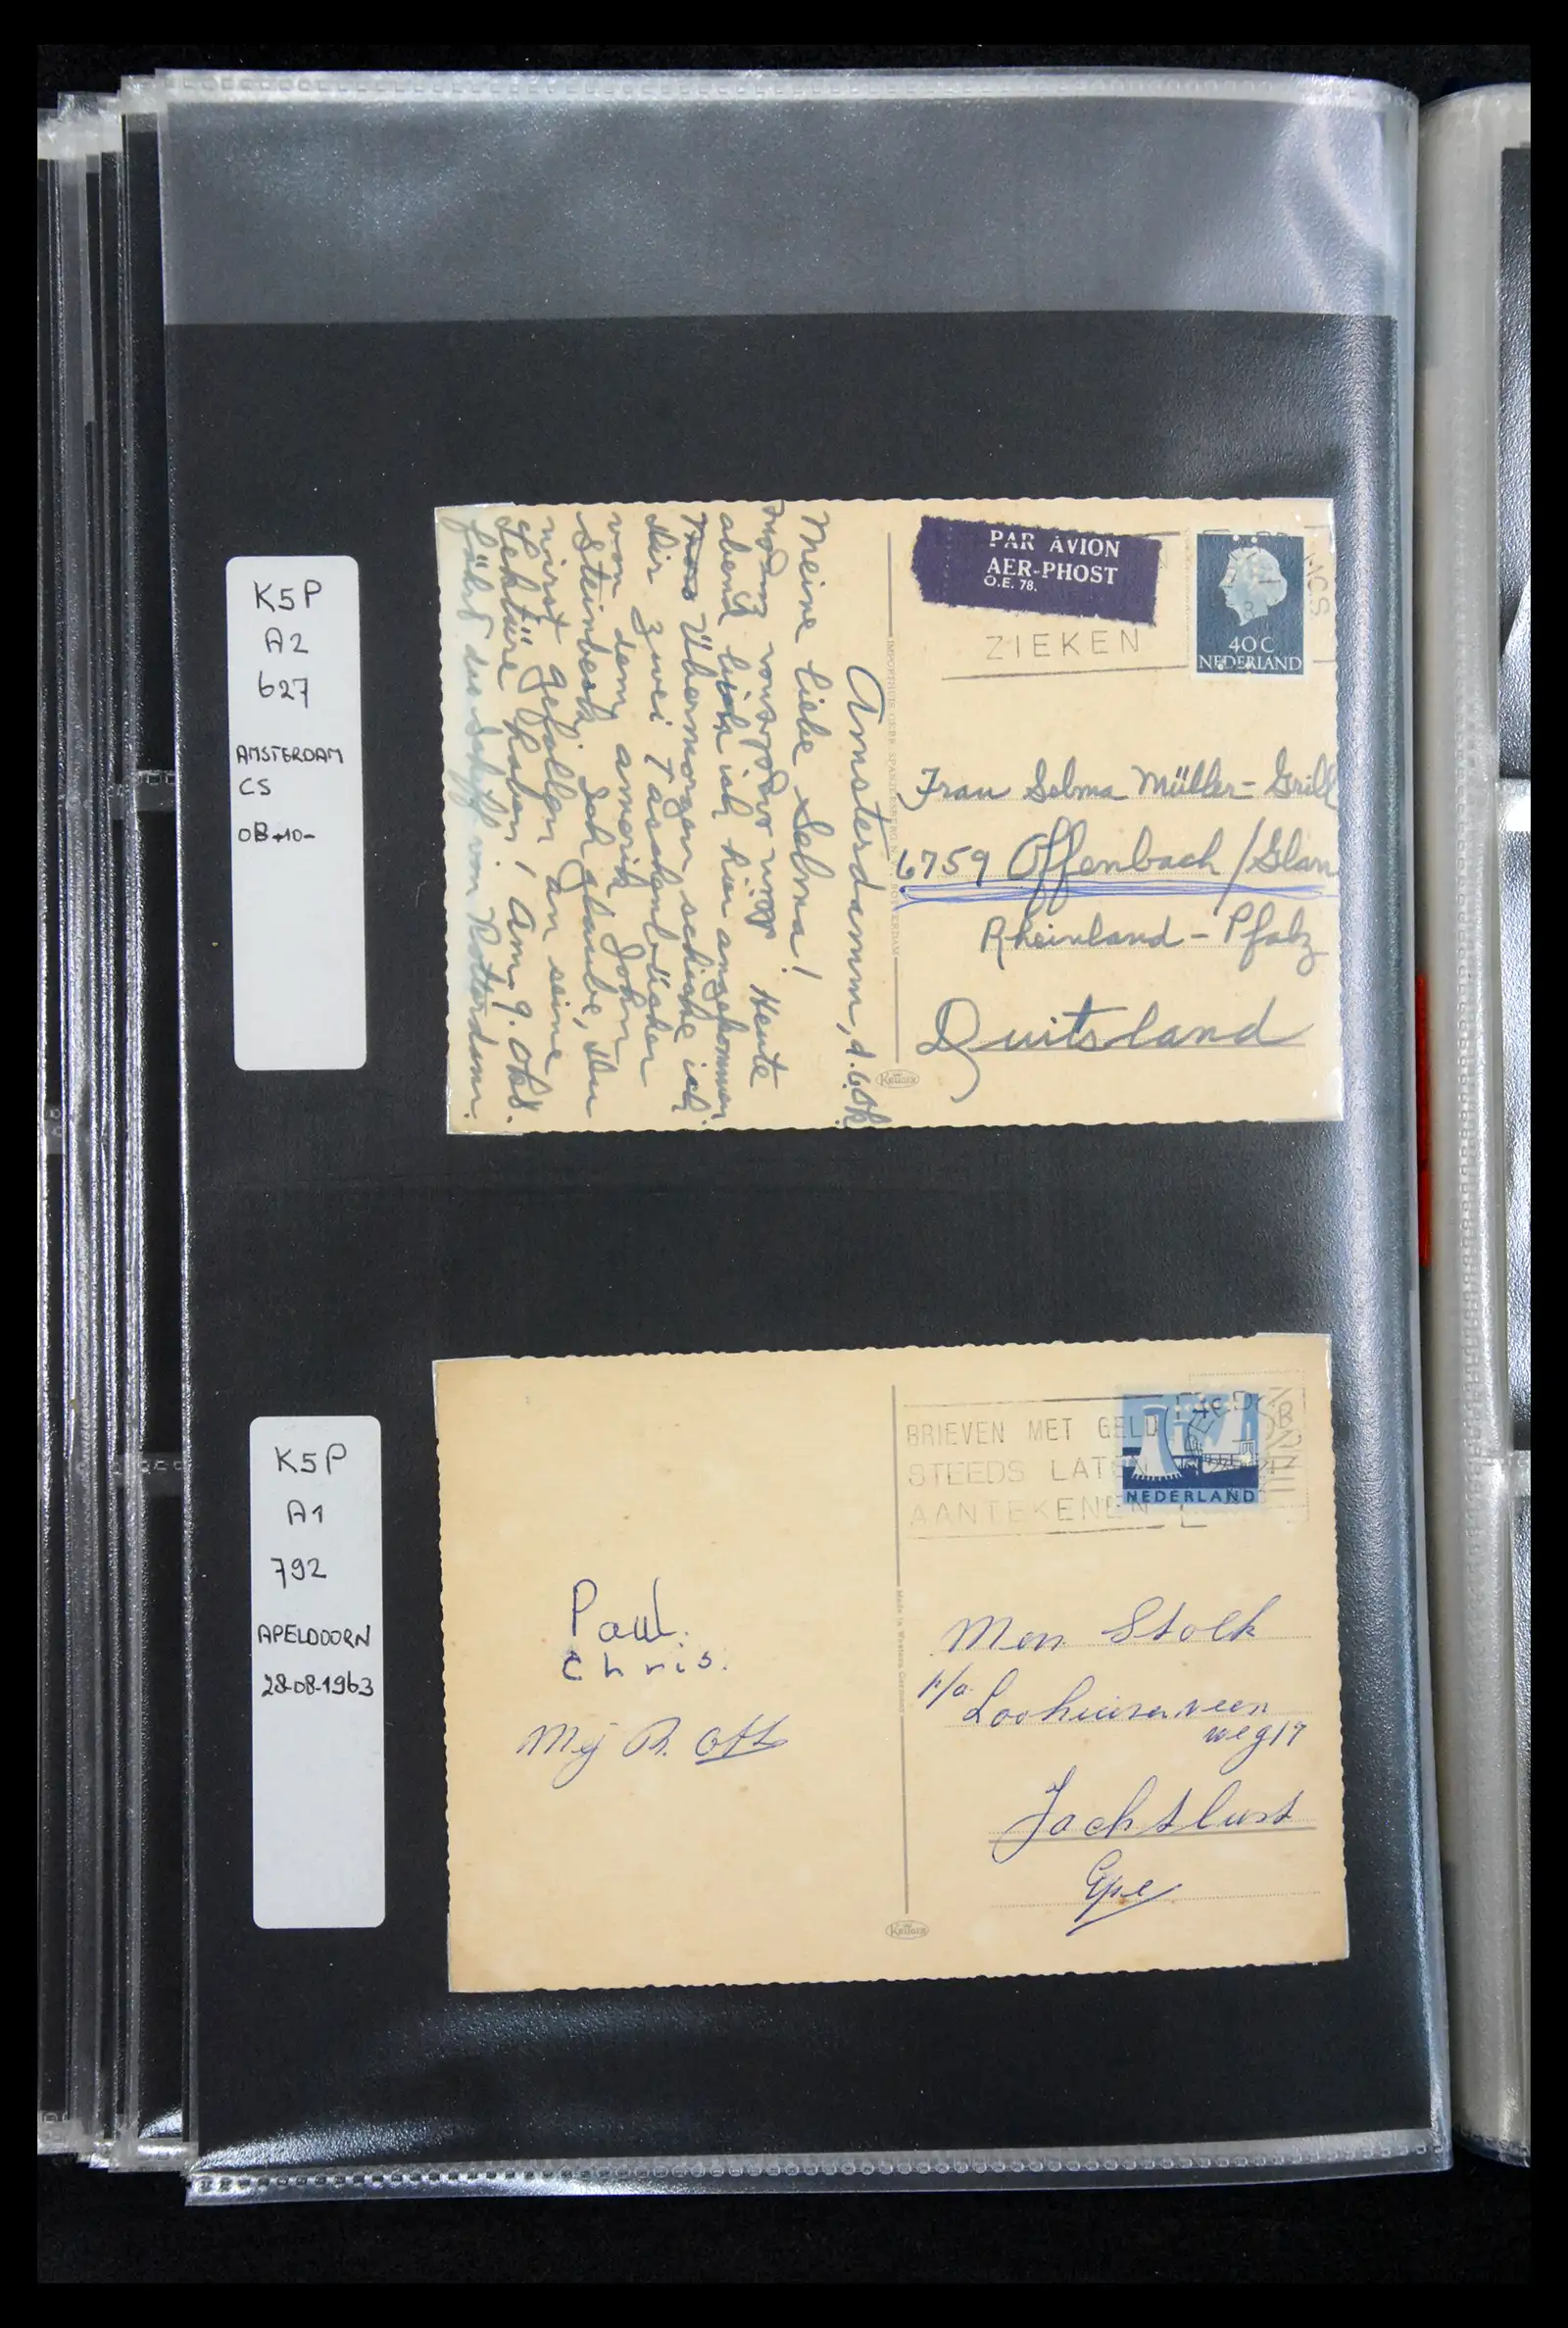 K5P
A2
627
AMSTERDAM
CS
08-10-
Amsterdamm, d. 6. Ok.
Meine liebe Selma!
Heute
abend bin ich hier angekommen.
Übermorgen schicke ich
Dir zwei Taschenbücher
von dem amerik. John
Steinbeck. Ich glaube, Du
wirst Gefallen an seine
Lektüre haben! Am 9. Okt.
fährt das Schiff von Rotterdam.
PAR AVION
AER-PHOST
O.E. 78.
ZIEKEN
40C
NEDERLAND
Frau Selma Müller-Grill
6759 Offenbach/Glan
Rheinland-Pfalz
Duitsland
Krüger
K5P
A1
792
APELDOORN
28-08-1963
Paul.
Chris.
Mej R. Ott
BRIEVEN MET GELD
STEEDS LATEN
AANTEKENEN
NEDERLAND
Made in Western Germany
Men Stolk
p/a Looheuserveen
weg 17
Jachtlust
Epe
Krüger